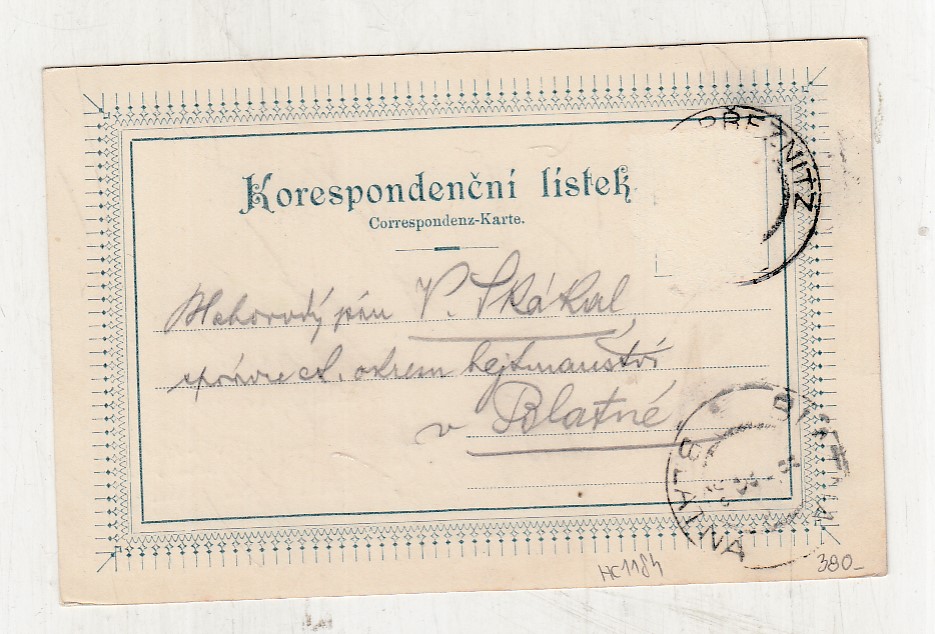 BŘEZNITZ
Korespondenční lístek
Correspondenz-Karte.
Blahorodý pán V. Skákal,
správce c. k. okresn. hejtmanství
v Blatné
BLATNA
BLATNA
HC1184
380_